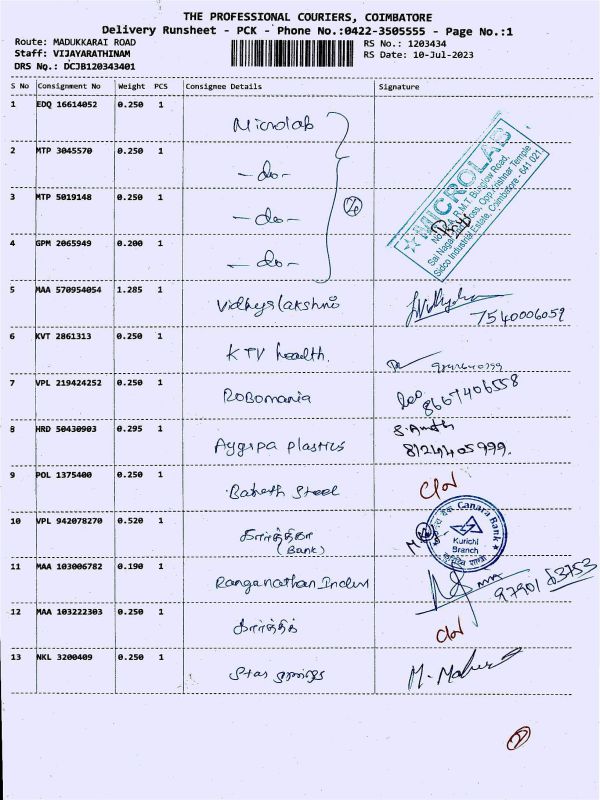 THE PROFESSIONAL COURIERS, COIMBATORE
Delivery Runsheet - PCK - Phone No.:0422-3505555 - Page No.:1
Route: MADUKKARAI ROAD
Staff: VIJAYARATHINAM
DRS No.: DCJB120343401
RS No.: 1203434
RS Date: 10-Jul-2023
S No Consignment No Weight PCS Consignee Details Signature
1 EDQ 16614052 0.250 1 Microlab
2 MTP 3045570 0.250 1 - do -
3 MTP 5019148 0.250 1 - do -
4 GPM 2065949 0.200 1 - do -
MICROLAB
Sidco Industrial Estate, Coimbatore - 641 021.
5 MAA 570954054 1.285 1 Vidhyslakshmi
7540006059
6 KVT 2861313 0.250 1 KTV health.
7 VPL 219424252 0.250 1 ROBOMANIA
8667406558
8 HRD 50430903 0.295 1 Ayyappa plastics
8124405999.
9 POL 1375400 0.250 1 Barath Steel
10 VPL 942078270 0.520 1
(Bank)
Canara Bank
Kurichi
Branch
11 MAA 103006782 0.190 1 Ranganathan Indus
97901 53753
12 MAA 103222303 0.250 1
13 NKL 3200409 0.250 1 Star springs